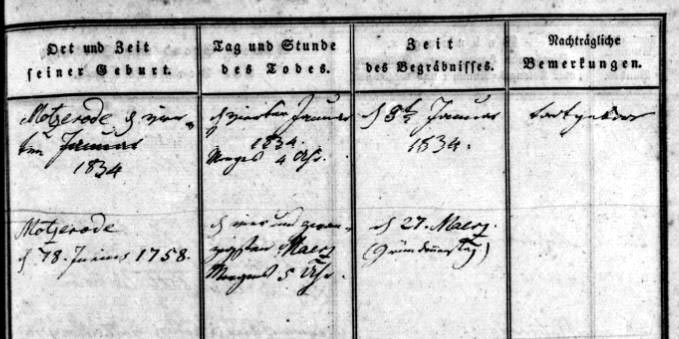 Ort und Zeit
seiner Geburt.
Tag und Stunde
des Todes.
Zeit
des Begräbnisses.
Nachträgliche
Bemerkungen.
Motzerode d vier-
ten Januar
1834
d vierten Januar
1834.
Morgens 4 Uhr.
d 8t Januar
1834.
todtgeboren
Motzerode
d 18. Junius 1758.
d vier und zwan-
zigsten Maerz
Morgens 5 Uhr.
d 27. Maerz
(Gründonnerstag)